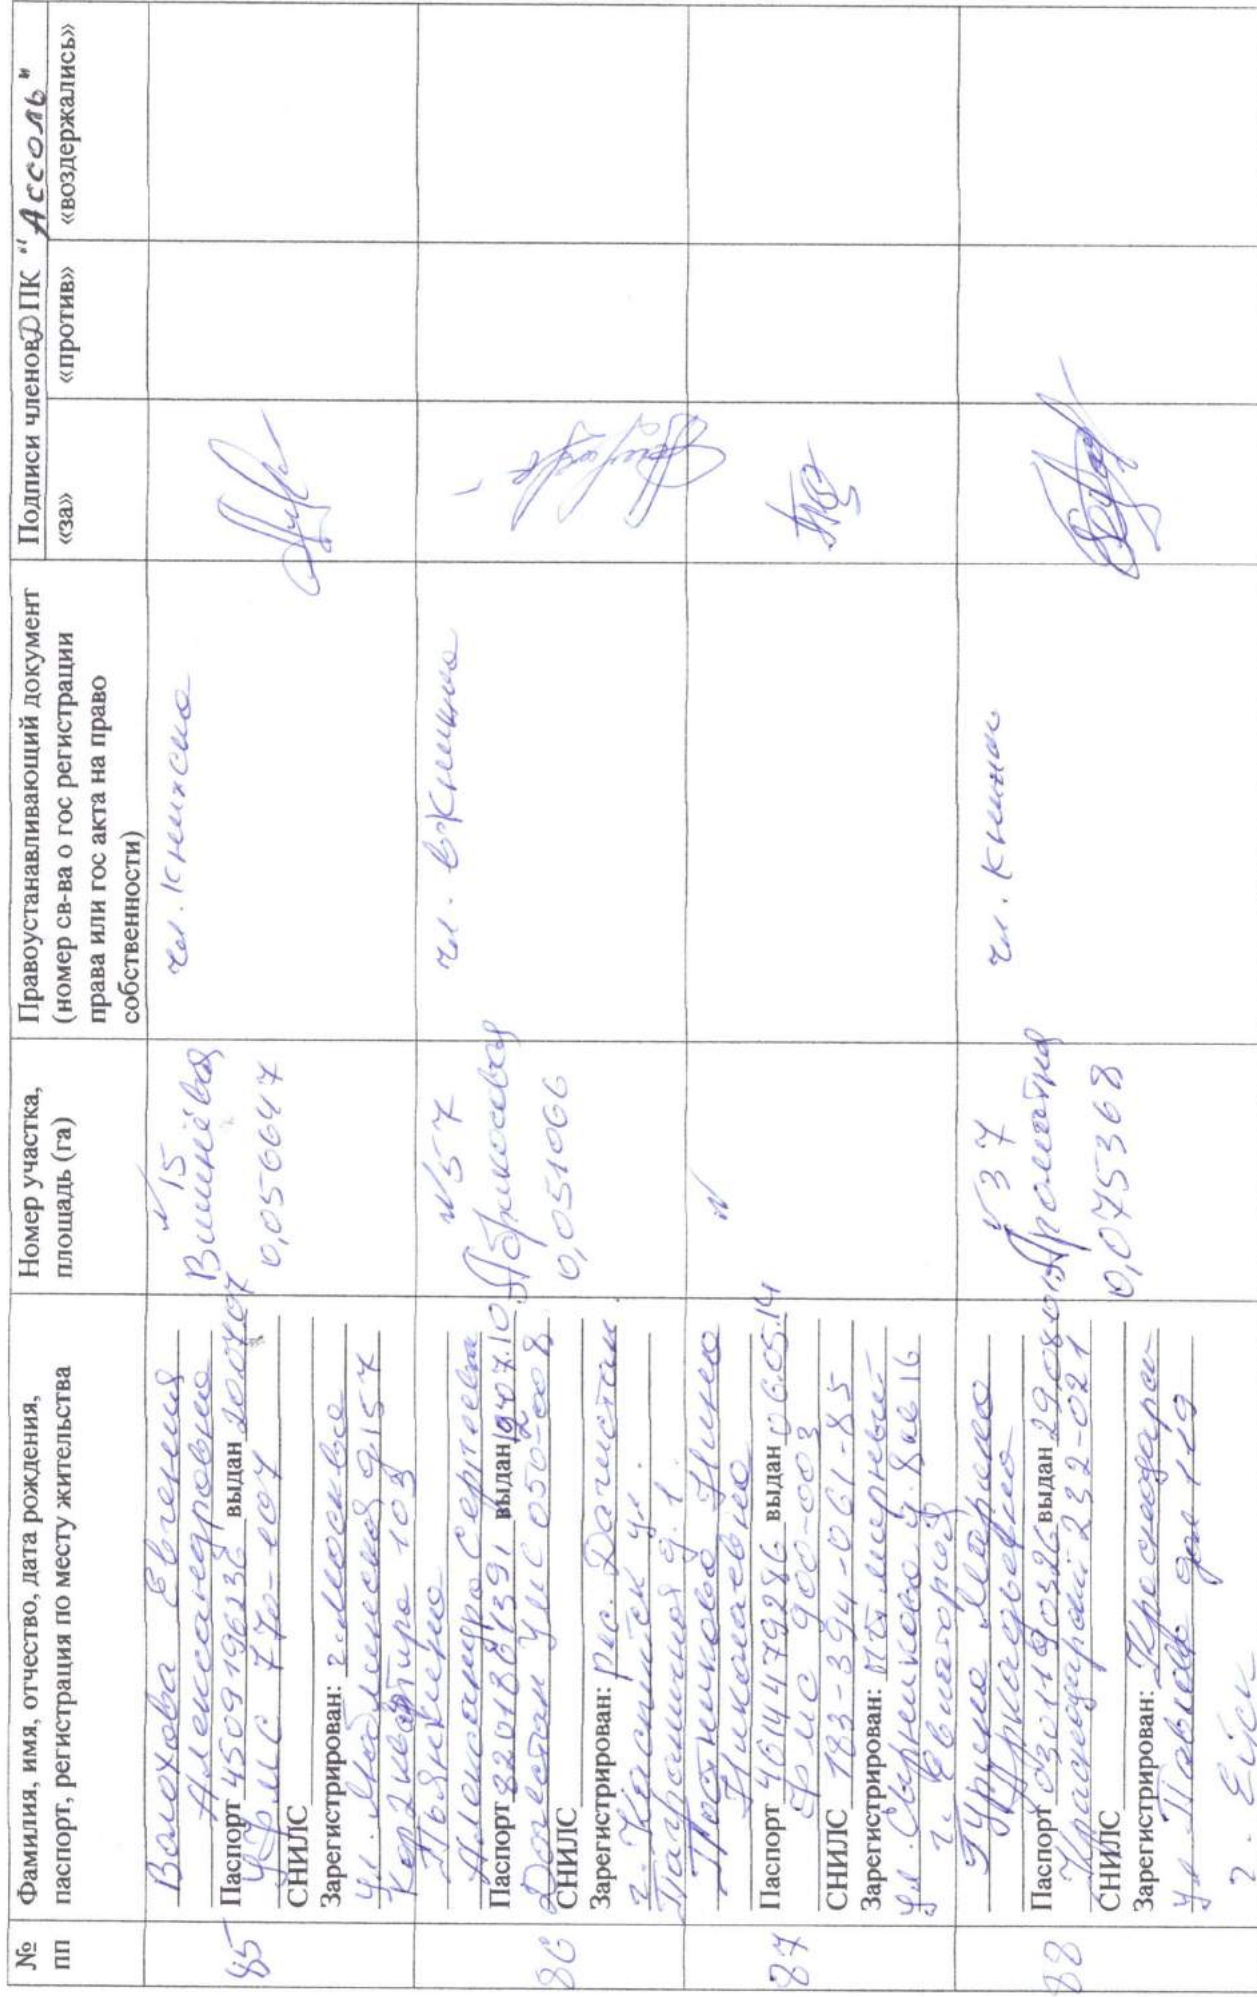 № пп
Фамилия, имя, отчество, дата рождения, паспорт, регистрация по месту жительства
Номер участка, площадь (га)
Правоустанавливающий документ (номер св-ва о гос регистрации права или гос акта на право собственности)
Подписи членов ДПК "Ассоль"
«за»
«против»
«воздержались»
85
Волохова Евгения
Александровна
Паспорт 4509196236 выдан 20.07.07
УФМС 770-107
СНИЛС
Зарегистрирован: г. Москва
ул. д 157
Кор 2 квартира 103
15
Вишнёвая
0,056647
чл. книжка
86
Александра Сергеевна
Паспорт 8201381391 выдан
Дагестан УМС 050-008
СНИЛС
Зарегистрирован: Рис. Дагестан
г. Каспийск ул.
д. 1.
№57
Абрикосовая
0,051066
чл. книжка
87
Постникова Нина
Николаевна
Паспорт 4614479286 выдан 06.05.14
ФМС 900-003
СНИЛС 183-394-061-85
Зарегистрирован:
ул. д. 8 кв 16
г. Евпатория
№
88
Гурина Марина
Аркадьевна
Паспорт 0301190326 выдан 29.08.01
Краснодарский 232-021
СНИЛС
Зарегистрирован: Краснодарск
ул Павлов дом 119
г. Ейск
37
Ароматная
0,075368
чл. книжк